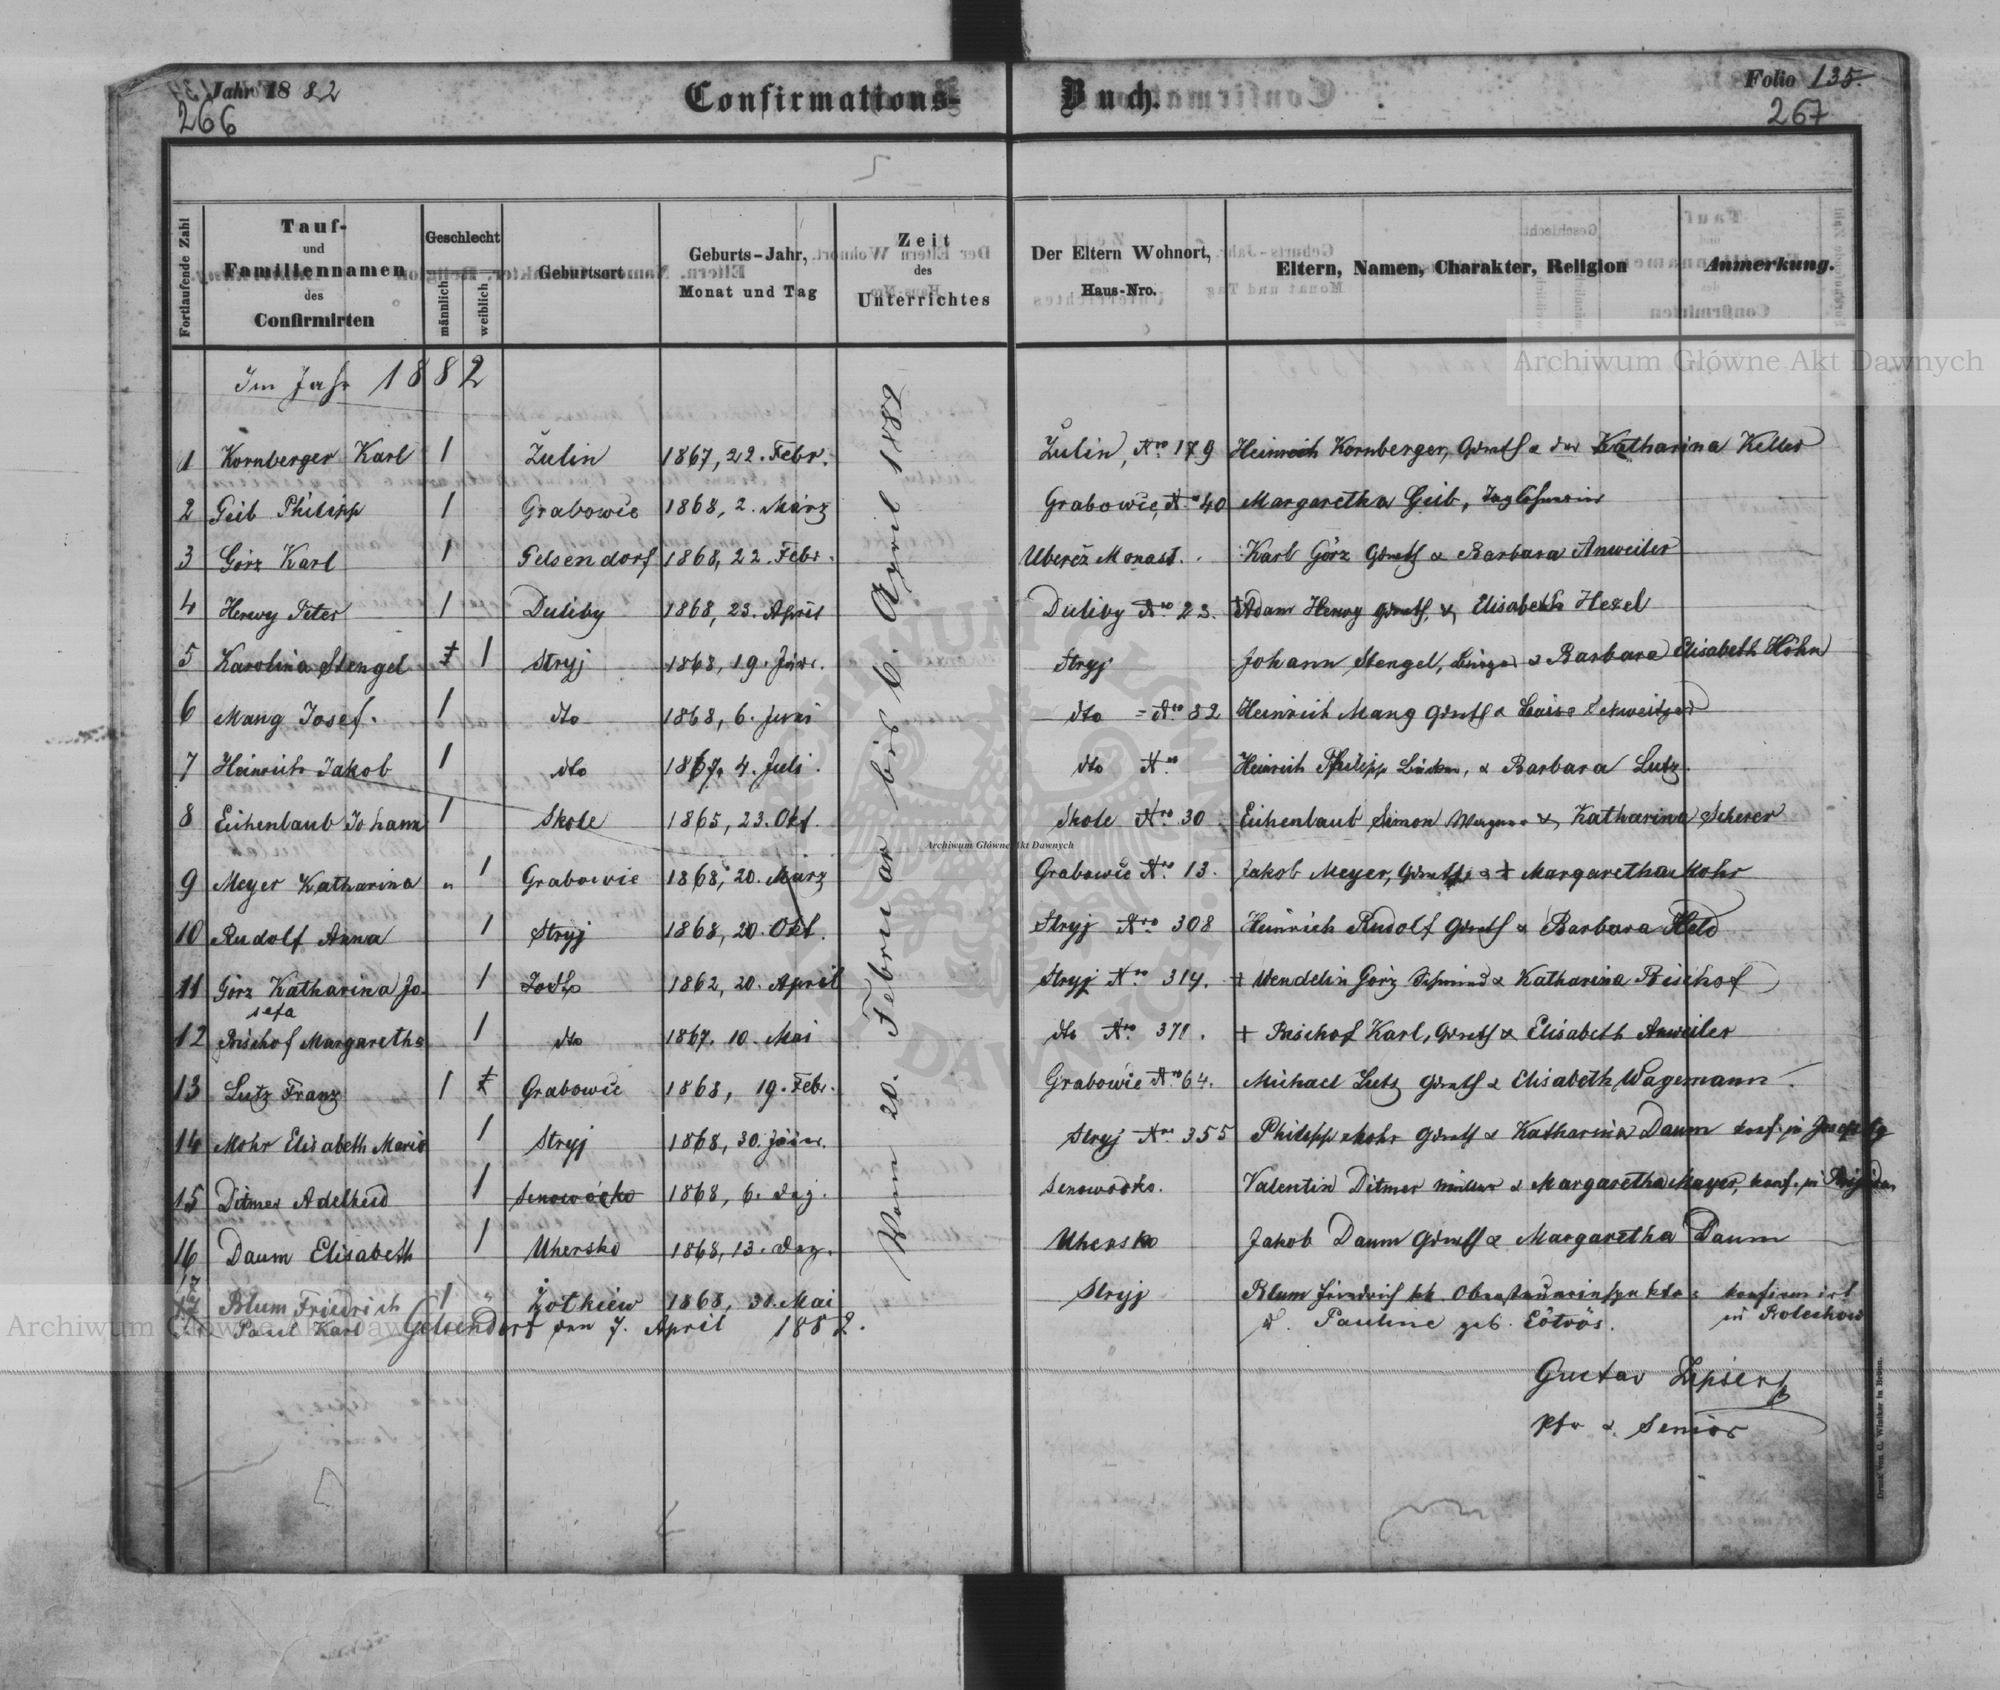 Jahr 1882
266
Confirmations-Buch.
Folio 135
267
Fortlaufende Zahl
Tauf- und Familiennamen des Confirmirten
Geschlecht
männlich
weiblich
Geburtsort
Geburts-Jahr, Monat und Tag
Zeit des Unterrichtes
Der Eltern Wohnort, Haus-Nro.
Eltern, Namen, Charakter, Religion
Anmerkung.
Im Jahr 1882
Vom 20. Februar bis 6. April 1882
1 Kornberger Karl 1 Żulin 1867, 22. Febr. Żulin, Nro 179 Heinrich Kornberger, Grdwth & der Katharina Keller
2 Geib Philipp 1 Grabowie 1868, 2. März Grabowie, No 40 Margaretha Geib, Taglöhnerin
3 Görz Karl 1 Gelsendorf 1868, 22. Febr. Uberež Monast. Karl Görz Grdwth & Barbara Anweiler
4 Herwy Peter 1 Duliby 1868, 23. April Duliby Nro 23. † Adam Herwy Grdwth. & Elisabeth Hezel
5 Karolina Stengel 1 Stryj 1868, 19. Jän. Stryj Johann Stengel, & Barbara Elisabeth Höhn
6 Mang Josef. 1 dto 1868, 6. Juni dto Nro 82 Heinrich Mang Grdwth & Luise Schweitzer
7 Heinrich Jakob 1 dto 1867, 4. Juli. dto Nro Heinrich Philipp & Barbara Lutz.
8 Eichenlaub Johann 1 Skole 1865, 23. Okt. Skole Nro 30 Eichenlaub Simon Wagner & Katharina Scherer
9 Meyer Katharina " 1 Grabowie 1868, 20. März Grabowie Nro 13. Jakob Meyer, Grdwth & † Margaretha Mohr
10 Rudolf Anna 1 Stryj 1868, 20. Okt. Stryj Nro 308 Heinrich Rudolf Grdwth & Barbara Held
11 Görz Katharina Jo-
sefa 1 dto 1862, 20. April Stryj Nro 314. † Wendelin Görz Schmied & Katharina Bischof
12 Bischof Margaretha 1 dto 1867. 10. Mai dto Nro 371. † Bischof Karl, Grdwth & Elisabeth Anweiler
13 Lutz Franz 1 Grabowie 1868, 19. Febr. Grabowie Nro 64. Michael Lutz Grdwth & Elisabeth Wagemann.
14 Mohr Elisabeth Maria 1 Stryj 1868, 30. Jänn. Stryj Nro 355 Philipp Mohr Grdwth & Katharina Daum konf. in
15 Ditmer Adelheid 1 Senowocko 1868, 6. Dez. Senowodko. Valentin Ditmer Müller & Margaretha Mayer, konf. in
16 Daum Elisabeth 1 Uhersko 1868, 13. Dez. Uhersko Jakob Daum Grdwth & Margaretha Daum
17 Blum Friedrich 1 " Żolkiew 1868, 31. Mai Stryj Blum Friedrich kk. konfirmirt
Paul Karl & Pauline geb. Eötvös. in Bolechow
Gelsendorf den 7. April 1882.
Gustav Zipser
Pfr & Senior
Druck von C. Winiker in Brünn.
Archiwum Główne Akt Dawnych
Archiwum Główne Akt Dawnych
Archiwum Główne Akt Dawnych
ARCHIWUM GŁÓWNE AKT DAWNYCH